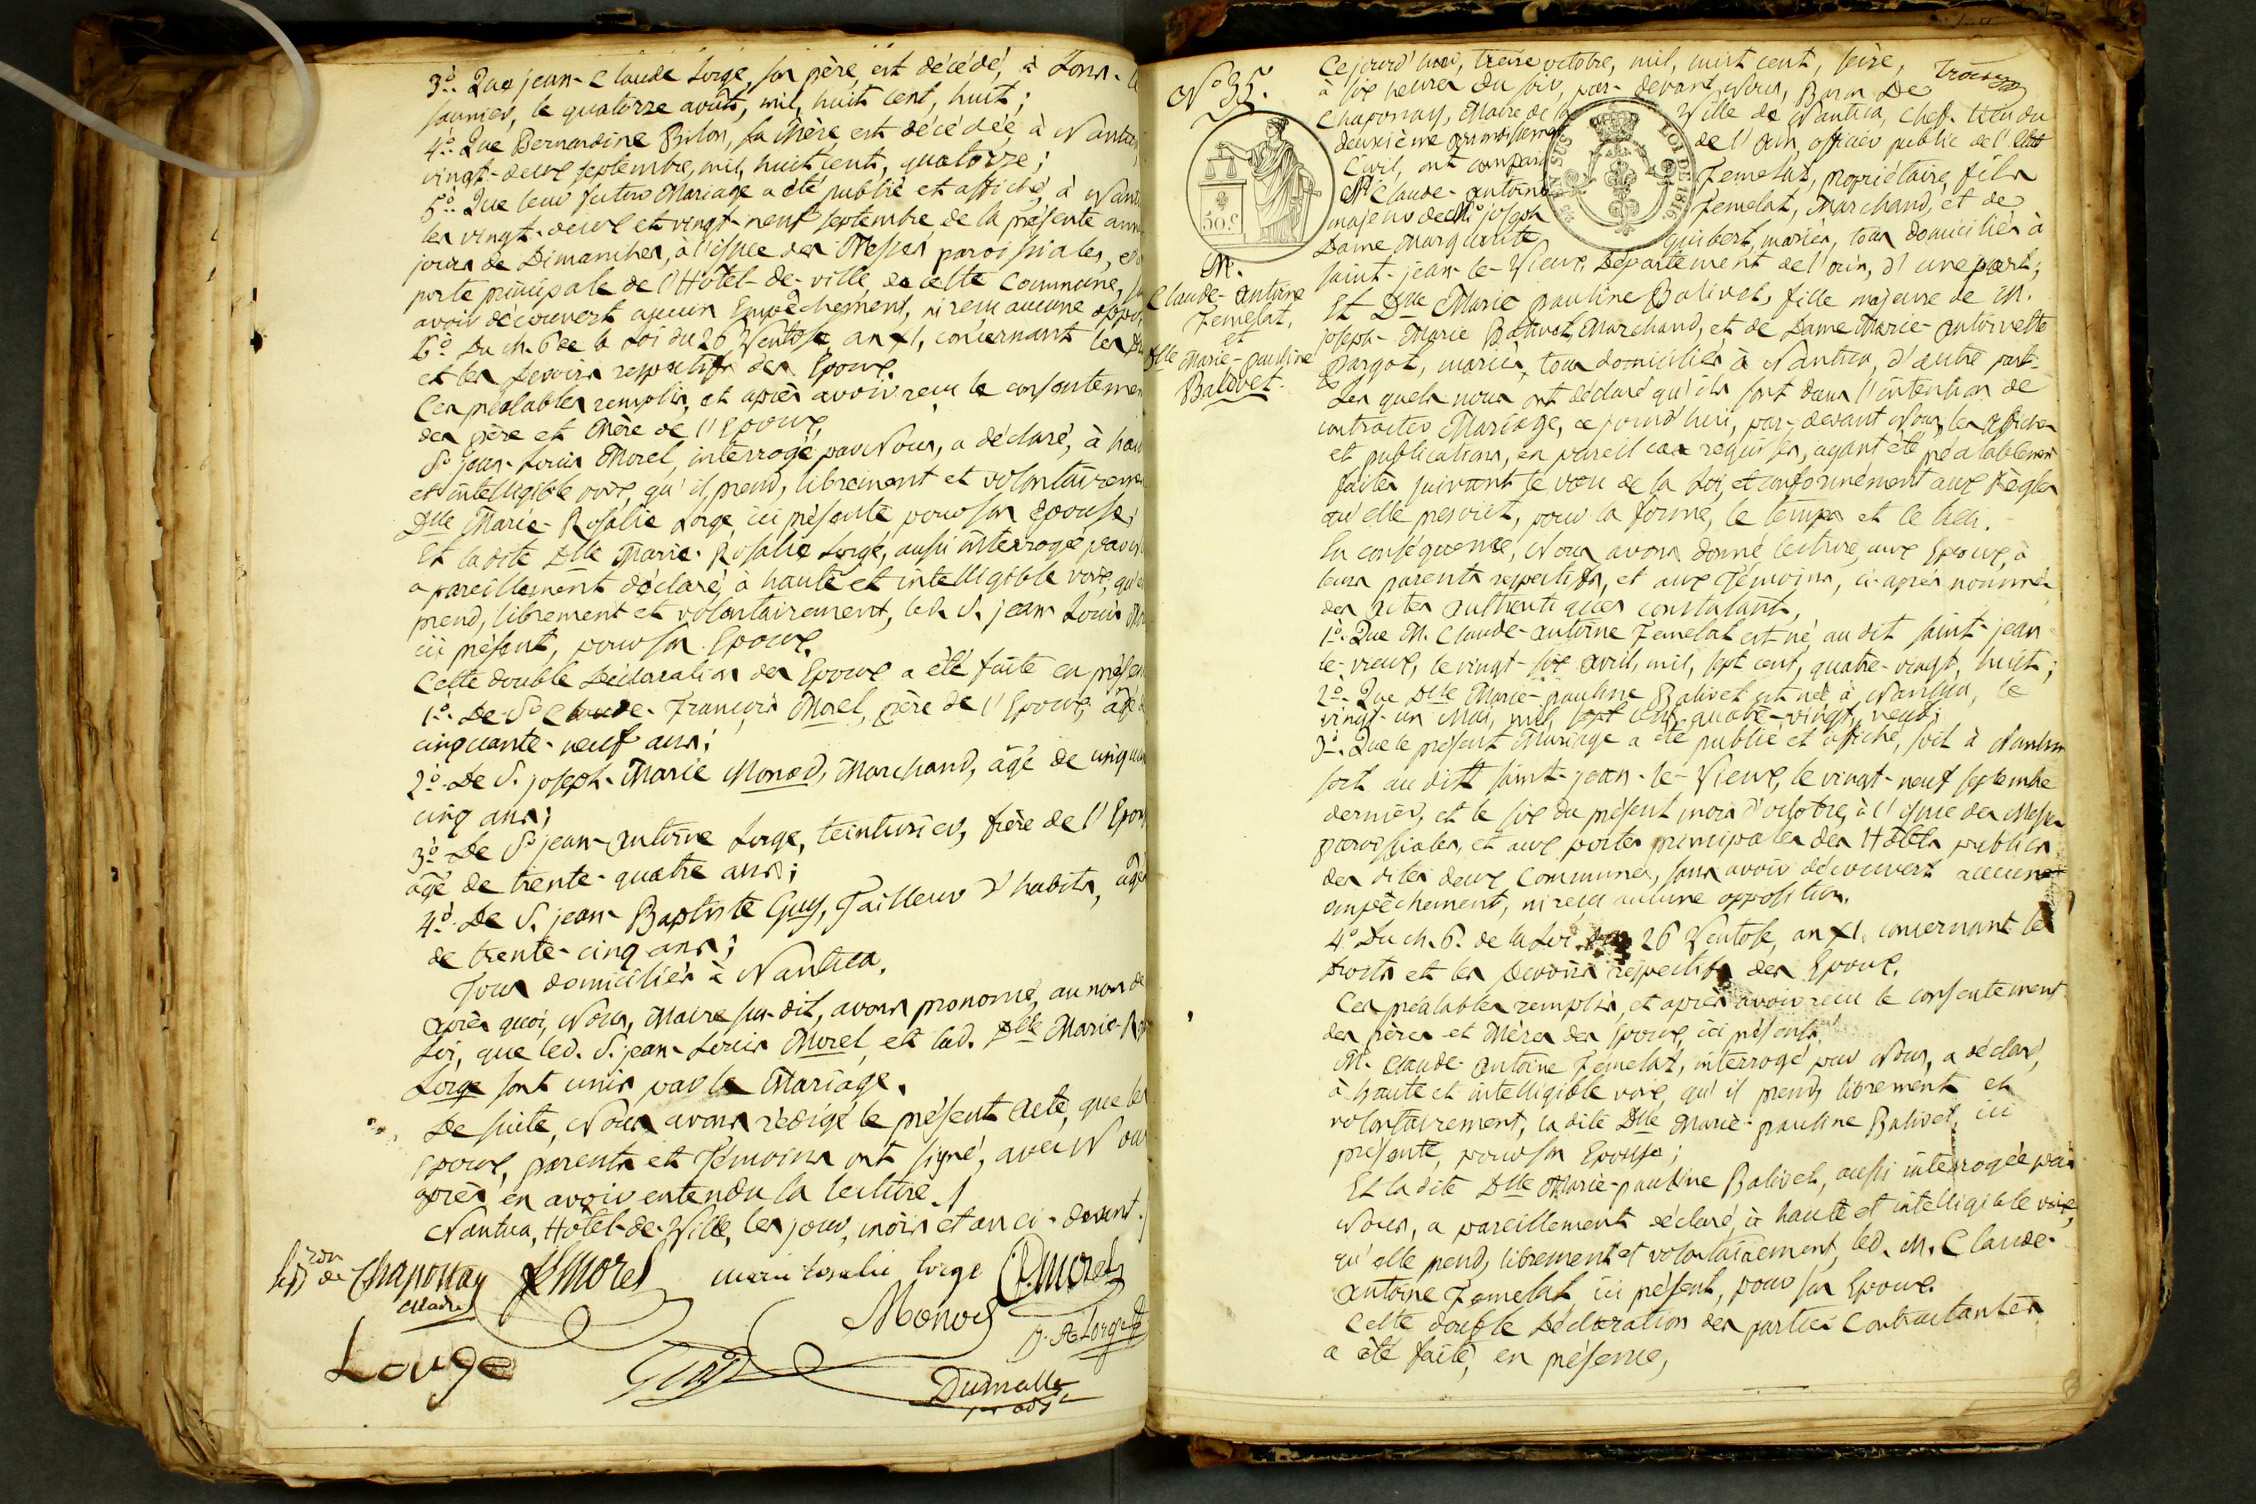 3º. Que jean-Claude Lorge, son père, est décédé, à Lons-le
saunier, le quatorze août, mil, huit cent, huit;
4º. Que Bernardine Brilon, sa Mère, est décédée, à Nantua,
vingt-deux septembre, mil, huit cent, quatorze;
5º. Que leur futur Mariage a été publié et affiché, à Nantua
les vingt-deux et vingt-neuf septembre de la présente ann
jours de Dimanches, à l'issue des Messes paroissiales, et
porte principale de l'Hôtel-de-ville de cette Commune,
avoir découvert aucun Empêchement, ni reçu aucune oppo
6º Du ch. 6 de la Loi du 26 Ventose an XI, concernant les
et les devoirs respectifs des Epoux.
Ces préalables remplis, et après avoir reçu le consentemen
des père et Mère de l'Epoux,
Sr jean-Louis Morel, interrogé par Nous, a déclaré, à hau
et intelligible voix, qu'il prend, librement et volontairemen
Dlle Marie-Rosalie Lorge, ici présente pour son Epouse;
Et la dite Dlle Marie-Rosalie Lorge, aussi interrogée par
a pareillement déclaré, à haute et intelligible voix, qu'
prend, librement et volontairement, led. S. jean Louis Mo
ici présent, pour son Epoux.
Cette double Déclaration des Epoux a été faite en présen
1º. De Sr Claude-François Morel, père de l'Epoux, âgé
cinquante-neuf ans;
2º. De S. joseph-Marie Monod, Marchand, âgé de cinquan
cinq ans;
3º De Sr jean-Antoine Lorge, teinturier, frère de l'Epou
âgé de trente-quatre ans;
4º. De S. jean-Baptiste Guy, Tailleur d'habits, âgé
de trente-cinq ans;
Tous domiciliés à Nantua.
Après quoi, Nous, Maire sus-dit, avons prononcé, au nom de
Loi, que led. S. jean-Louis Morel, et lad. Dlle Marie-R
Lorge sont unis par le Mariage.
De suite, Nous avons rédigé le présent acte, que les
Epoux, parents et Témoins ont signé, avec Nous
après en avoir entendu la lecture./
Nantua, Hôtel-de-Ville, les jour, mois et an ci-devant./
de Chaponay JLMorel marie rosalie lorge Morel
Maire
Monod
J. A. Lorge
Lorge Guy
Dumalle
N° 35.
50 c.
LOI DE 1816
M.
Claude-Antoine
Jemelat,
et
Dlle Marie-pauline
Balivet.
Ce jourd'hui, treize octobre, mil, huit cent, seize,
à six heures du soir, par-devant Nous, Baron De
Chaponay, Maire de la Ville de Nantua, Chef-lieu du
deuxième arrondissement de l'Ain, officier public de l'Etat
Civil, ont comparu
M. Claude-Antoine Jemelat, propriétaire, fils
majeur de M. joseph Jemelat, Marchand, et de
Dame Marguerite Guibert, mariés, tous domiciliés à
saint-jean-le-Vieux, Département de l'ain, d'une part;
Et Dlle Marie pauline Balivet, fille majeure de M.
joseph-Marie Balivet, Marchand, et de Dame Marie-Antoinette
Margot, mariés, tous domiciliés à Nantua, d'autre part.
Les quels nous ont déclaré qu'ils sont dans l'intention de
contracter Mariage, ce jourd'hui, par-devant Nous, les affiches
et publications, en pareil cas requises, ayant été préalablement
faites suivant le vœu de la Loi, et conformément aux Règles
qu'elle prescrit, pour la forme, le temps et le lieu.
En conséquence, Nous avons donné lecture, aux Epoux, à
leurs parents respectifs, et aux Témoins, ci-après nommés
des Actes authentiques constatant,
1º. Que M. Claude-Antoine Jemelat est né, au dit saint-jean
le-vieux, le vingt-six avril, mil, sept cent, quatre-vingt, huit;
2º. Que Dlle Marie-pauline Balivet est née à Nantua, le
vingt-un Mai, mil, sept cent, quatre-vingt, neuf;
3º. Que le présent Mariage a été publié et affiché, soit à Nantua
soit au dit saint-jean-le-Vieux, le vingt-neuf septembre
dernier, et le six du présent mois d'octobre, à l'issue des Messes
paroissiales, et aux portes principales des Hôtels publics
des dites deux Communes, sans avoir découvert aucun
empêchement, ni reçu aucune opposition.
4º Du ch. 6. de la Loi du 26 Ventose, an XI, concernant les
droits et les devoirs respectifs des Epoux.
Ces préalables remplis, et après avoir reçu le consentement
des pères et Mères des Epoux, ici présents,
M. Claude-Antoine Jemelat, interrogé par Nous, a déclaré,
à haute et intelligible voix, qu'il prend, librement et
volontairement, la dite Dlle Marie-pauline Balivet, ici
présente, pour son Epouse;
Et la dite Dlle Marie-pauline Balivet, aussi interrogée par
Nous, a pareillement déclaré, à haute et intelligible voix,
qu'elle prend, librement et volontairement, led. M. Claude-
Antoine Jemelat ici présent, pour son Epoux.
Cette double Déclaration des parties Contractantes
a été faite, en présence,